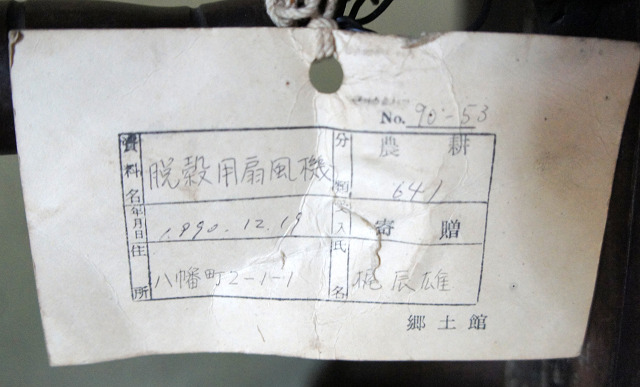 No. 90-53
資料名 脱穀用扇風機 分類 農耕 641
年月日 1990.12.19 受入 寄贈
住所 八幡町2-1-1 氏名 梶辰雄
郷土館